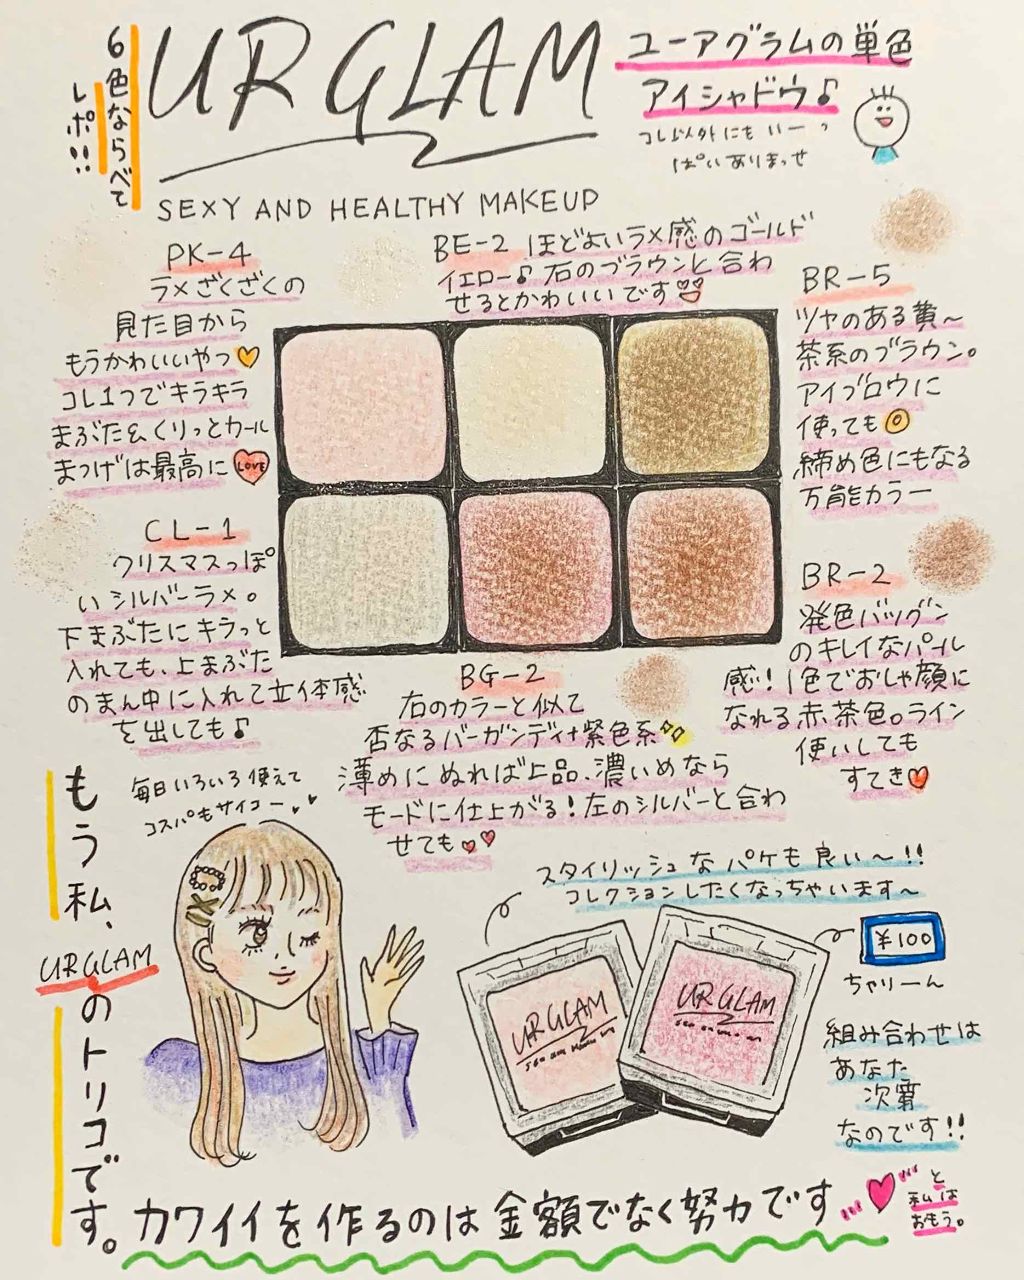 6色ならべて
レポ!!
UR GLAM
SEXY AND HEALTHY MAKEUP
ユーアグラムの単色
アイシャドウ♪
コレ以外にも いーっ
ぱいありまっせ
PK-4
ラメざくざくの
見た目から
もうかわいいやつ
コレ1つでキラキラ
まぶた&くりっとカール
まつげは最高に LOVE
BE-2 ほどよいラメ感のゴールド
イエロー♪右のブラウンと合わ
せるとかわいいです
BR-5
ツヤのある黄〜
茶系のブラウン。
アイブロウに
使っても◎
締め色にもなる
万能カラー
CL-1
クリスマスっぽ
いシルバーラメ。
下まぶたにキラっと
入れても、上まぶた
のまん中に入れて立体感
を出しても♪
BG-2
右のカラーと似て
否なるバーガンディ+紫色系
薄めにぬれば上品、濃いめなら
モードに仕上がる!左のシルバーと合わ
せても
BR-2
発色バツグン
のキレイなパール
感!1色でおしゃ顔に
なれる赤茶色。ライン
使いしても
すてき
もう私、
UR GLAM
のトリコです。
毎日いろいろ使えて
コスパもサイコー
スタイリッシュなパケも良い〜!!
コレクションしたくなっちゃいます〜
UR GLAM
UR GLAM
¥100
ちゃりーん
組み合わせは
あなた
次第
なのです!!
カワイイを作るのは金額でなく努力です…
と
私は
おもう。